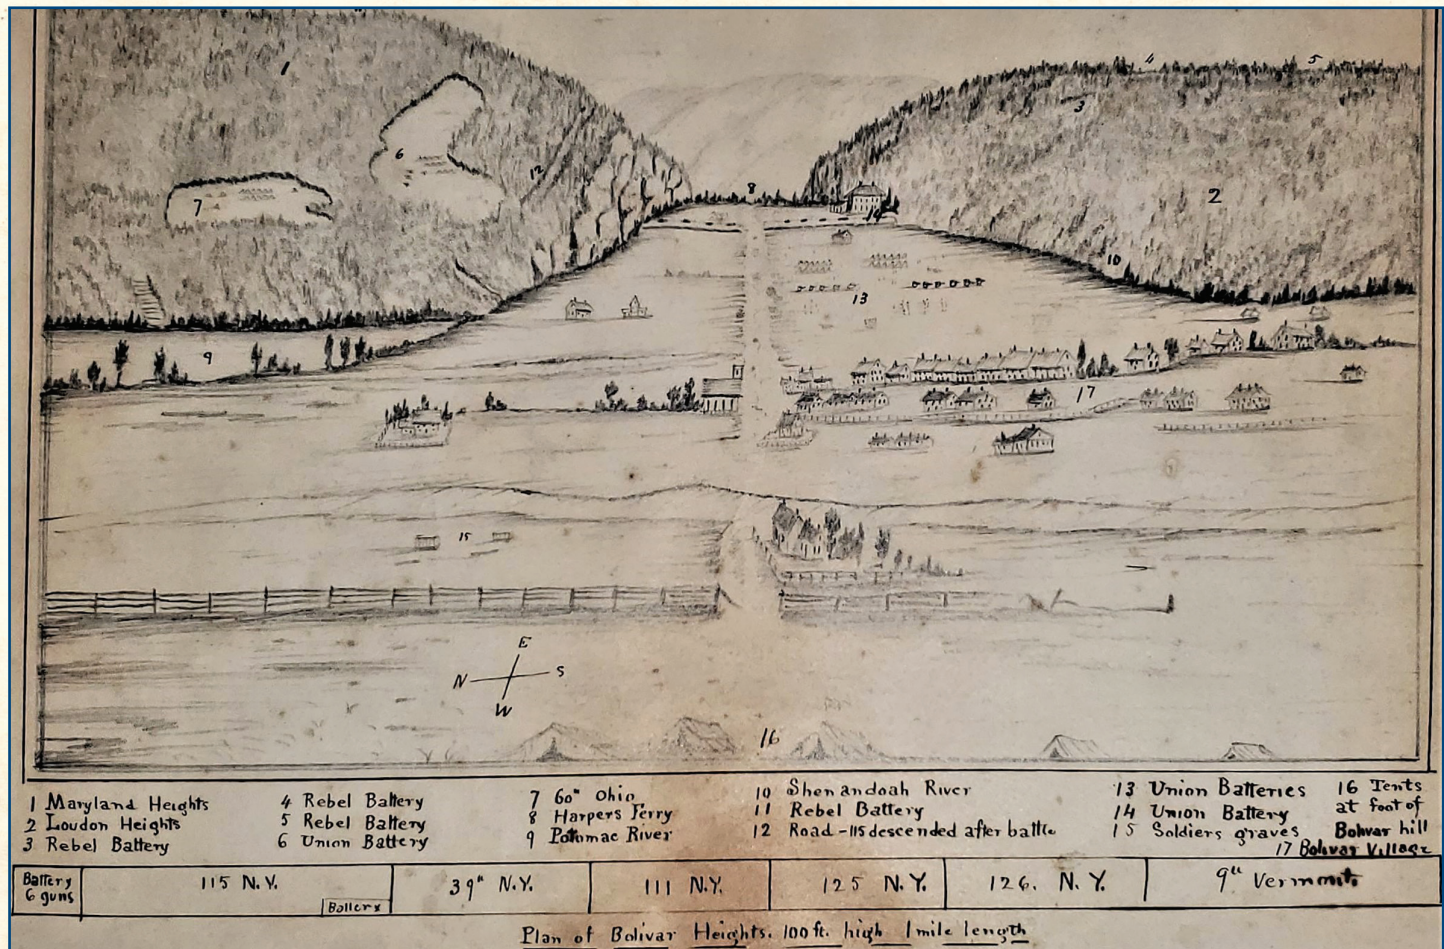 1
4
5
3
6
12
2
7
8
14
10
13
9
17
15
E
N S
W
16
1 Maryland Heights
2 Loudon Heights
3 Rebel Battery
4 Rebel Battery
5 Rebel Battery
6 Union Battery
7 60" Ohio
8 Harpers Ferry
9 Potomac River
10 Shenandoah River
11 Rebel Battery
12 Road - 115 descended after battle
13 Union Batteries
14 Union Battery
15 Soldiers graves
16 Tents
at foot of
Bolivar hill
17 Bolivar Village
Battery
6 guns
115 N.Y.
Battery
39" N.Y.
111 N.Y.
125 N.Y.
126. N.Y.
9th Vermont
Plan of Bolivar Heights. 100 ft. high 1 mile length